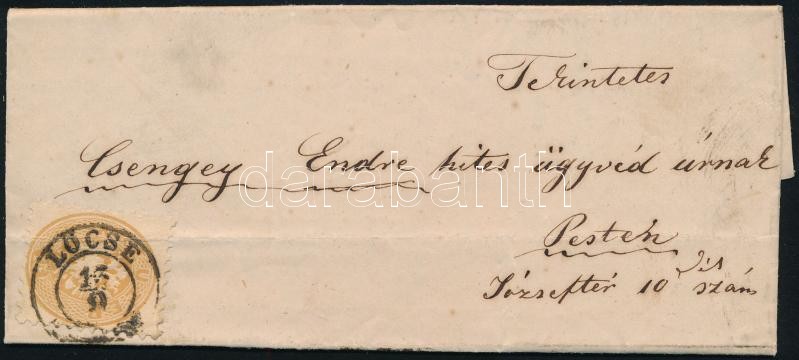 Tekintetes
Csengey Endre hites ügyvéd úrnak
Pesten
Józseftér 10 dik szám
LŐCSE
15
9
darabanth